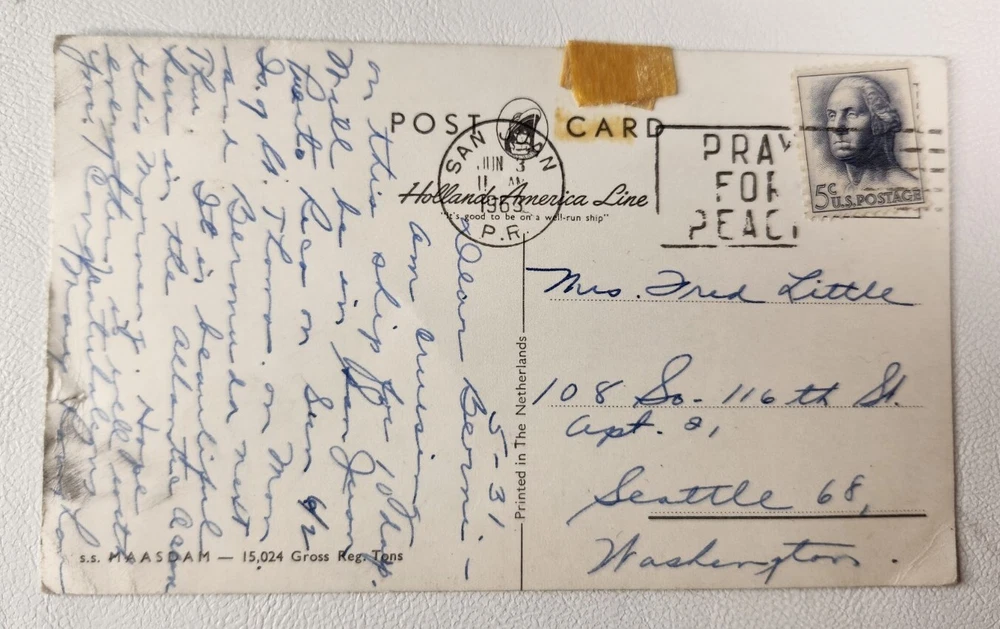 POST CARD
Holland-America Line
"It's good to be on a well-run ship"
SAN JUAN
JUN 3
11 AM
1963
P.R.
PRAY
FOR
PEACE
5¢
U.S. POSTAGE
Mrs. Fred Little
108 So. 116th St.
Apt. 21
Seattle 68,
Washington.
Printed in The Netherlands
5-31
Dear Beomi-
am cruising
on this ship for 10 days.
Will be in San Juan
Puerto Rico on Sun 6/2
St. Thomas on Mon
and Bermuda next
Thu. It is beautiful
here in the Atlantic Ocean
this morning. Hope
everything is well with
you. Congratulations
s.s. MAASDAM — 15,024 Gross Reg. Tons